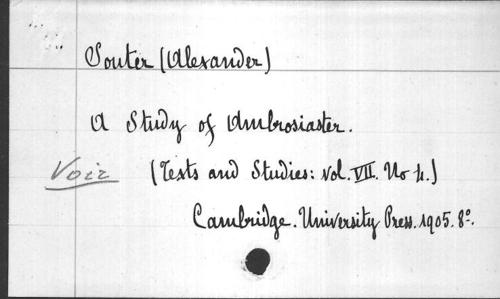 Souter (Alexander)
A Study of Ambrosiaster.
Voir (Texts and Studies: vol. VII. No 4.)
Cambridge. University Press. 1905. 8º.